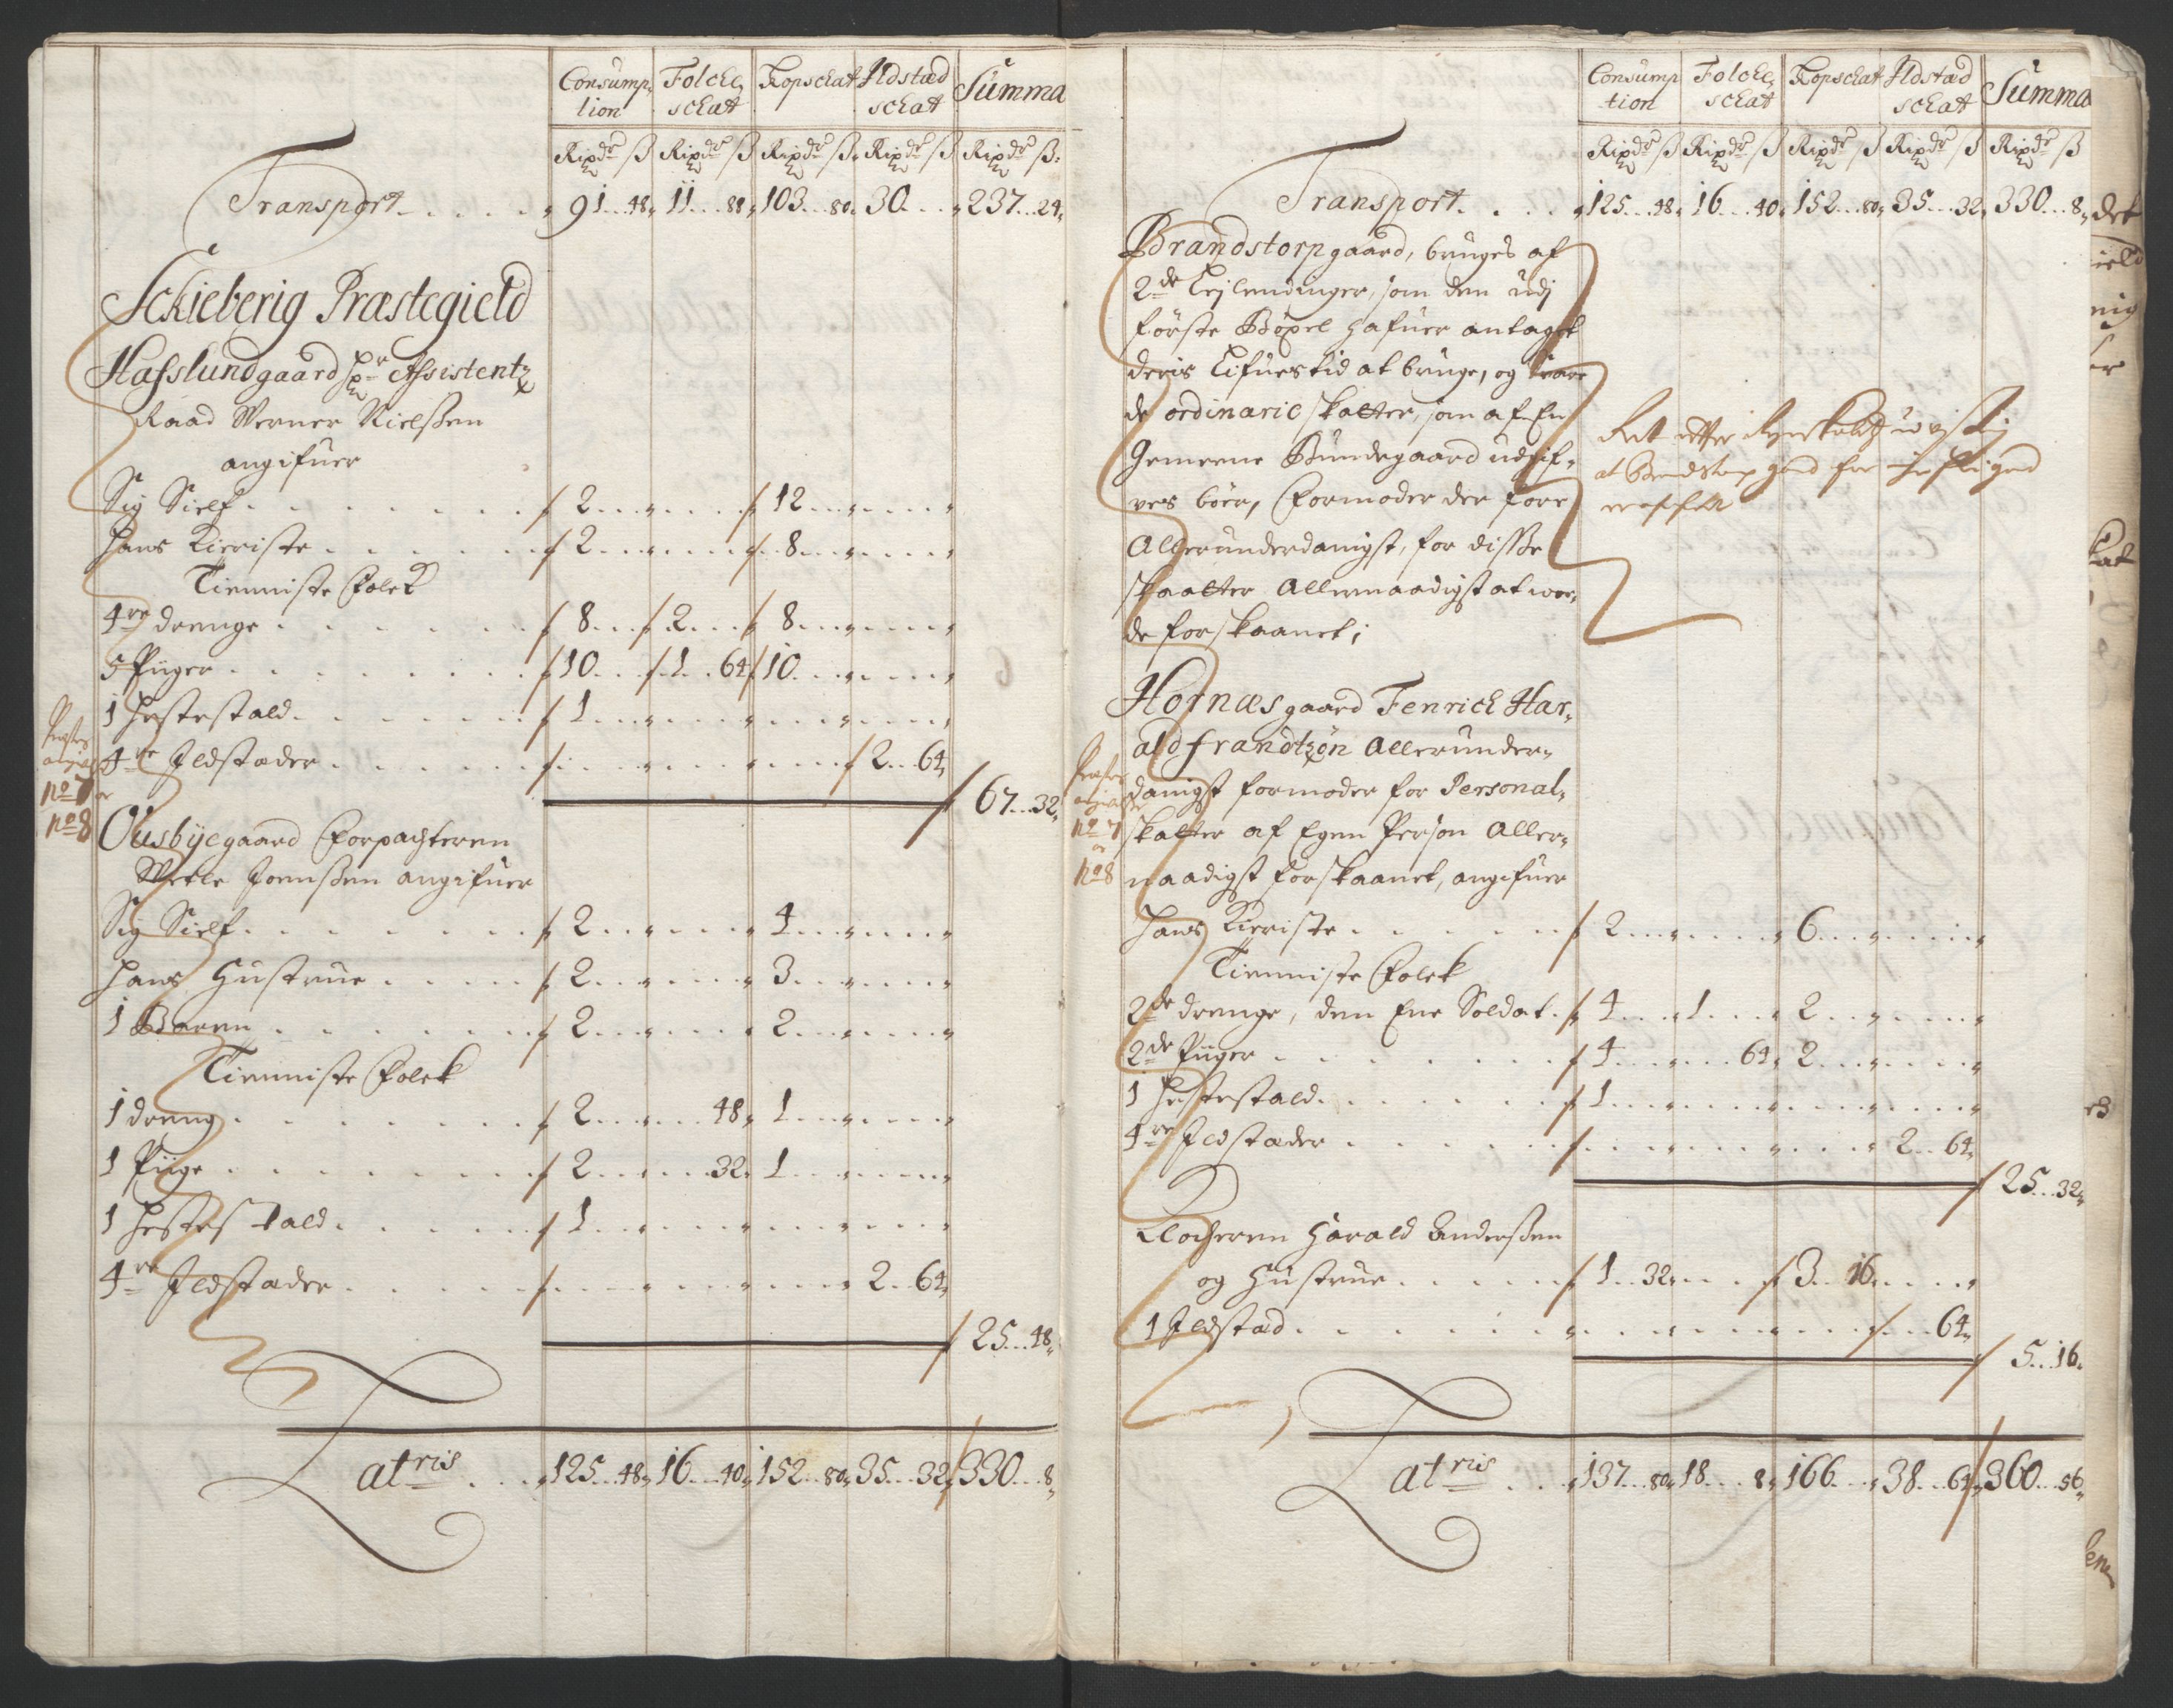 Consump, Folcke, Kopschat Ildstæd Summa
tion schat schat
Rixdr ß Rixdr ß Rixdr ß Rixdr ß Rixdr ß
Transport 91 48 11 88 103 80 30 237 24
Schieberig Præstegield
Hafslundgaard Hr Assistentz
Raad Werner Nielßen
angifuer
Sig Sielf 2 12
Hans Kieriste 2 8
Tienniste Folck
4re drenge 8 2 8
5 Piiger 10 1 64 10
1 Hestestald 1
4re Ildstæder 2 64
67 32
No 7
No 8
Ousbyegaard Forpachteren
Joenßen angifuer
Sig Sielf 2 4
Hans Hustrue 2 3
1 Baren 2 2
Tienniste Folck
1 dreng 2 48 1
1 Piige 2 32 1
1 Hestestald 1
4re Ildstæder 2 64
25 48
Latris 125 48 16 40 152 80 35 32 330 8
Consump Folcke, Kopschat Ildstæd Summa
tion schat schat
Rixdr ß Rixdr ß Rixdr ß Rixdr ß Rixdr ß
Transport 125 48 16 40 152 80 35 32 330 8
Brandstorpgaard, bruges af
2de Lejlendinger, som den udj
første Bøxel hafuer antaget
deris Lifues tid at bruge, og
de ordinarie skatter, som af En
Gemeene Bundegaard udgif-
ves bör, Formoder der fore
Allerunderdanigst, for disse
skaatter Allernaadigst at wor-
de forskaanet;
at Brandstorp gaard for
Hornæsgaard Fenrich Har-
ald frandtzøn Allerunder-
danigst formoder for Personal-
skatter af Egen Person Aller-
naadigst forskaanet, angifuer
No 7
No 8
Hans Kieriste 2 6
Tienniste Folck
2de drenge, den Ene Soldat 4 1 2
2de Piiger 4 64 2
1 Hestestald 1
4re Ildstæder 2 64
25 32
Klocheren Harald Anderßen
og Hustrue 1 32 3 16
1 Ildstæd 64
5 16
Latris 137 80 18 8 166 38 64 360 56